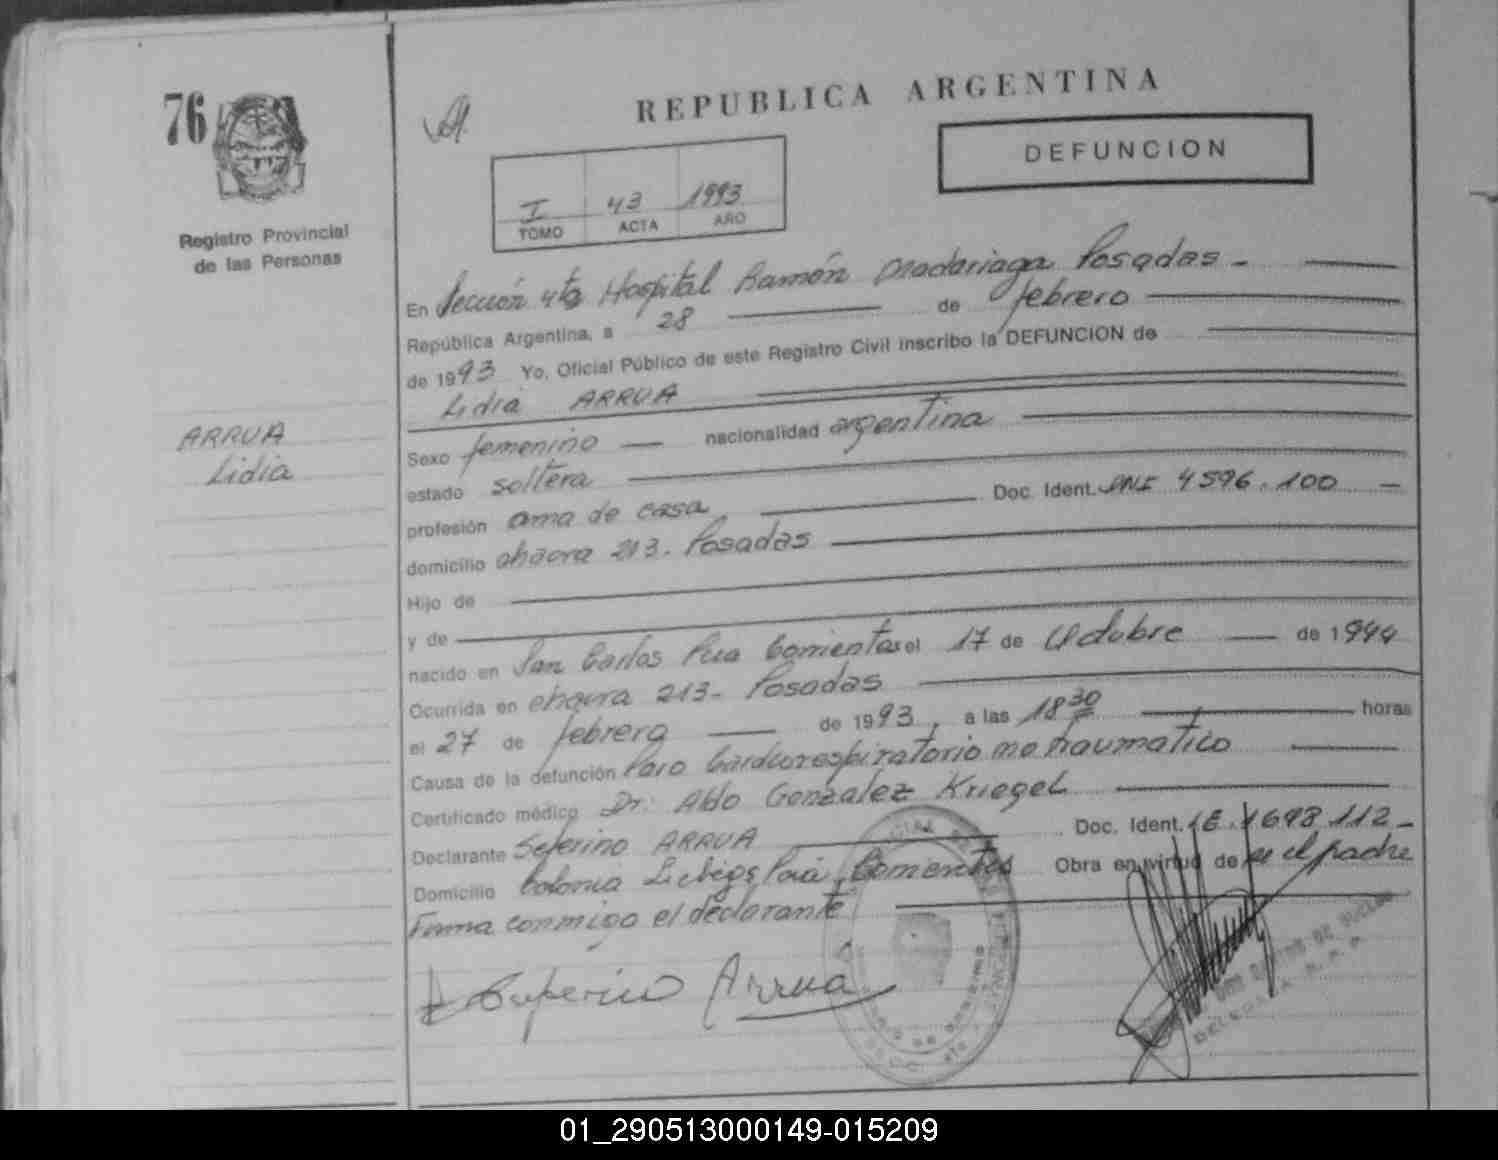 76
REPUBLICA ARGENTINA
DEFUNCION
I 43 1993
TOMO ACTA AÑO
Registro Provincial
de las Personas
En Sección 4ta Hospital Ramón Madariaga Posadas -
República Argentina, a 28 de febrero
de 1993 Yo, Oficial Público de este Registro Civil inscribo la DEFUNCION de
Lidia ARRUA
ARRUA
Lidia
Sexo femenino nacionalidad argentina
estado soltera
profesión ama de casa Doc. Ident. DNI 4596.100 -
domicilio chacra 213. Posadas
Hijo de
y de
nacido en San Carlos Pcia Corrientes el 17 de Octubre de 1944
Ocurrida en chacra 213- Posadas
el 27 de febrero de 1993, a las 18 30 horas
Causa de la defunción Paro Cardiorespiratorio no traumatico
Certificado médico Dr: Aldo Gonzalez Kriegel
Declarante Seferino ARRUA Doc. Ident. LE. 1698.112-
Domicilio Colonia Liebigs Pcia Corrientes Obra en virtud de ser el padre
Firma conmigo el declarante
Seferino Arrua
01_290513000149-015209